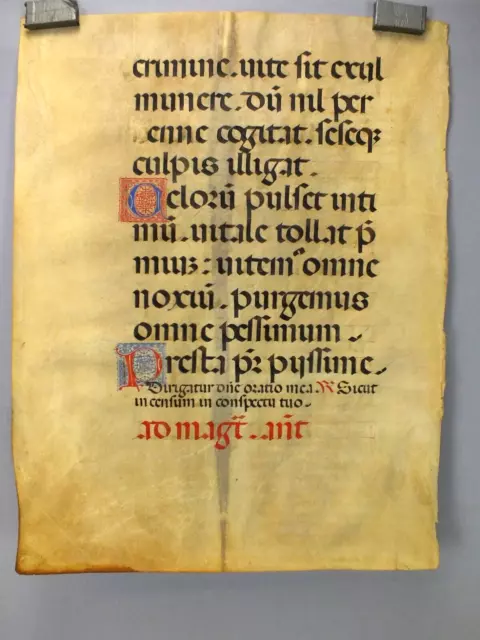 crimine. vite sit exul
munere. dū nil per
enne cogitat. seseqꝫ
culpis illigat.
Celorū pulset inti
mū. vitale tollat p̄
miuȝ: vitemꝰ omne
noxiū. purgemus
omne pessimum.
Presta pr̄ pijssime.
℣ Dirigatur dn̄e oratio mea ℟ Sicut
incensum in conspectu tuo.
ad mag̃t. añt